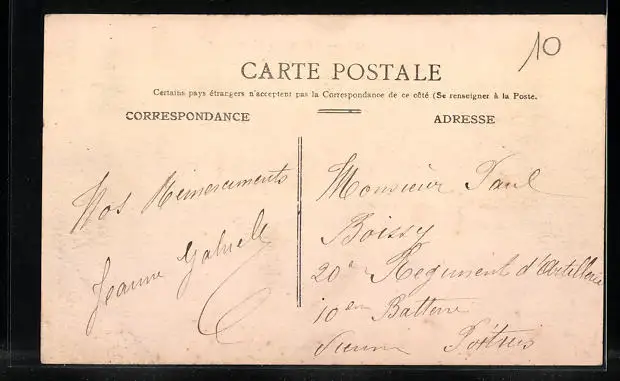 10
CARTE POSTALE
Certains pays étrangers n'acceptent pas la Correspondance de ce côté (Se renseigner à la Poste.
CORRESPONDANCE
ADRESSE
Nos Remerciements
Jeanne Gabrielle
Monsieur Paul
Boissy
20e Regiment d'Artillerie
10em Batterie
Vienne Poitiers